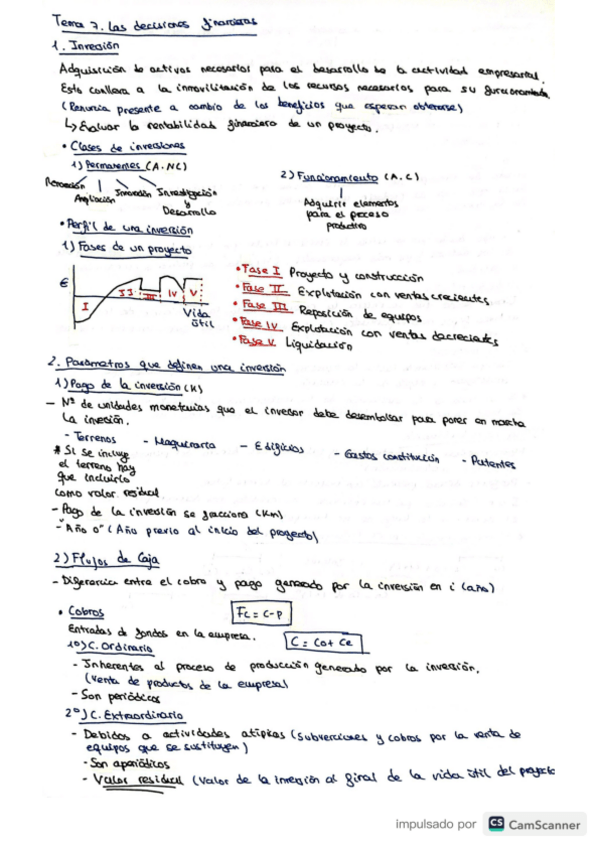 Tema 7. Las decisiones financieras
1. Inversión
Adquisición de activos necesarios para el desarrollo de la actividad empresarial.
Esto conlleva a la inmovilización de los recursos necesarios para su funcionamiento
(Renuncia presente a cambio de los beneficios que esperan obtenerse)
↳ Evaluar la rentabilidad financiera de un proyecto.
• Clases de inversiones
1) Permanentes (A.NC)
Renovación Ampliación Innovación Investigación
Desarrollo
2) Funcionamiento (A.C)
Adquirir elementos
para el proceso
productivo
• Perfil de una inversión
1) Fases de un proyecto
€
I II III IV V
Vida
útil
• Fase I Proyecto y construcción
• Fase II Explotación con ventas crecientes
• Fase III Reposición de equipos
• Fase IV Explotación con ventas decrecientes
• Fase V Liquidación
2. Parámetros que definen una inversión
1) Pago de la inversión (K)
- Nº de unidades monetarias que el inversor debe desembolsar para poner en marcha
la inversión.
- Terrenos - Maquinaria - Edificios - Gastos constitución - Patentes
# Si se incluye
el terreno hay
que incluirlo
como valor residual
- Pago de la inversión se fracciona (Km)
- "Año 0" (Año previo al inicio del proyecto)
2) Flujos de Caja
- Diferencia entre el cobro y pago generado por la inversión en i (año)
• Cobros
Fc = C-P
Entradas de fondos en la empresa.
C = Co + Ce
1º) C. Ordinario
- Inherentes al proceso de producción generado por la inversión.
(venta de productos de la empresa)
- Son periódicos
2º) C. Extraordinario
- Debidos a actividades atípicas (subvenciones y cobros por la venta de
equipos que se sustituyen)
- Son aperiódicos
- Valor residual (Valor de la inversión al final de la vida útil del proyecto
impulsado por CS CamScanner